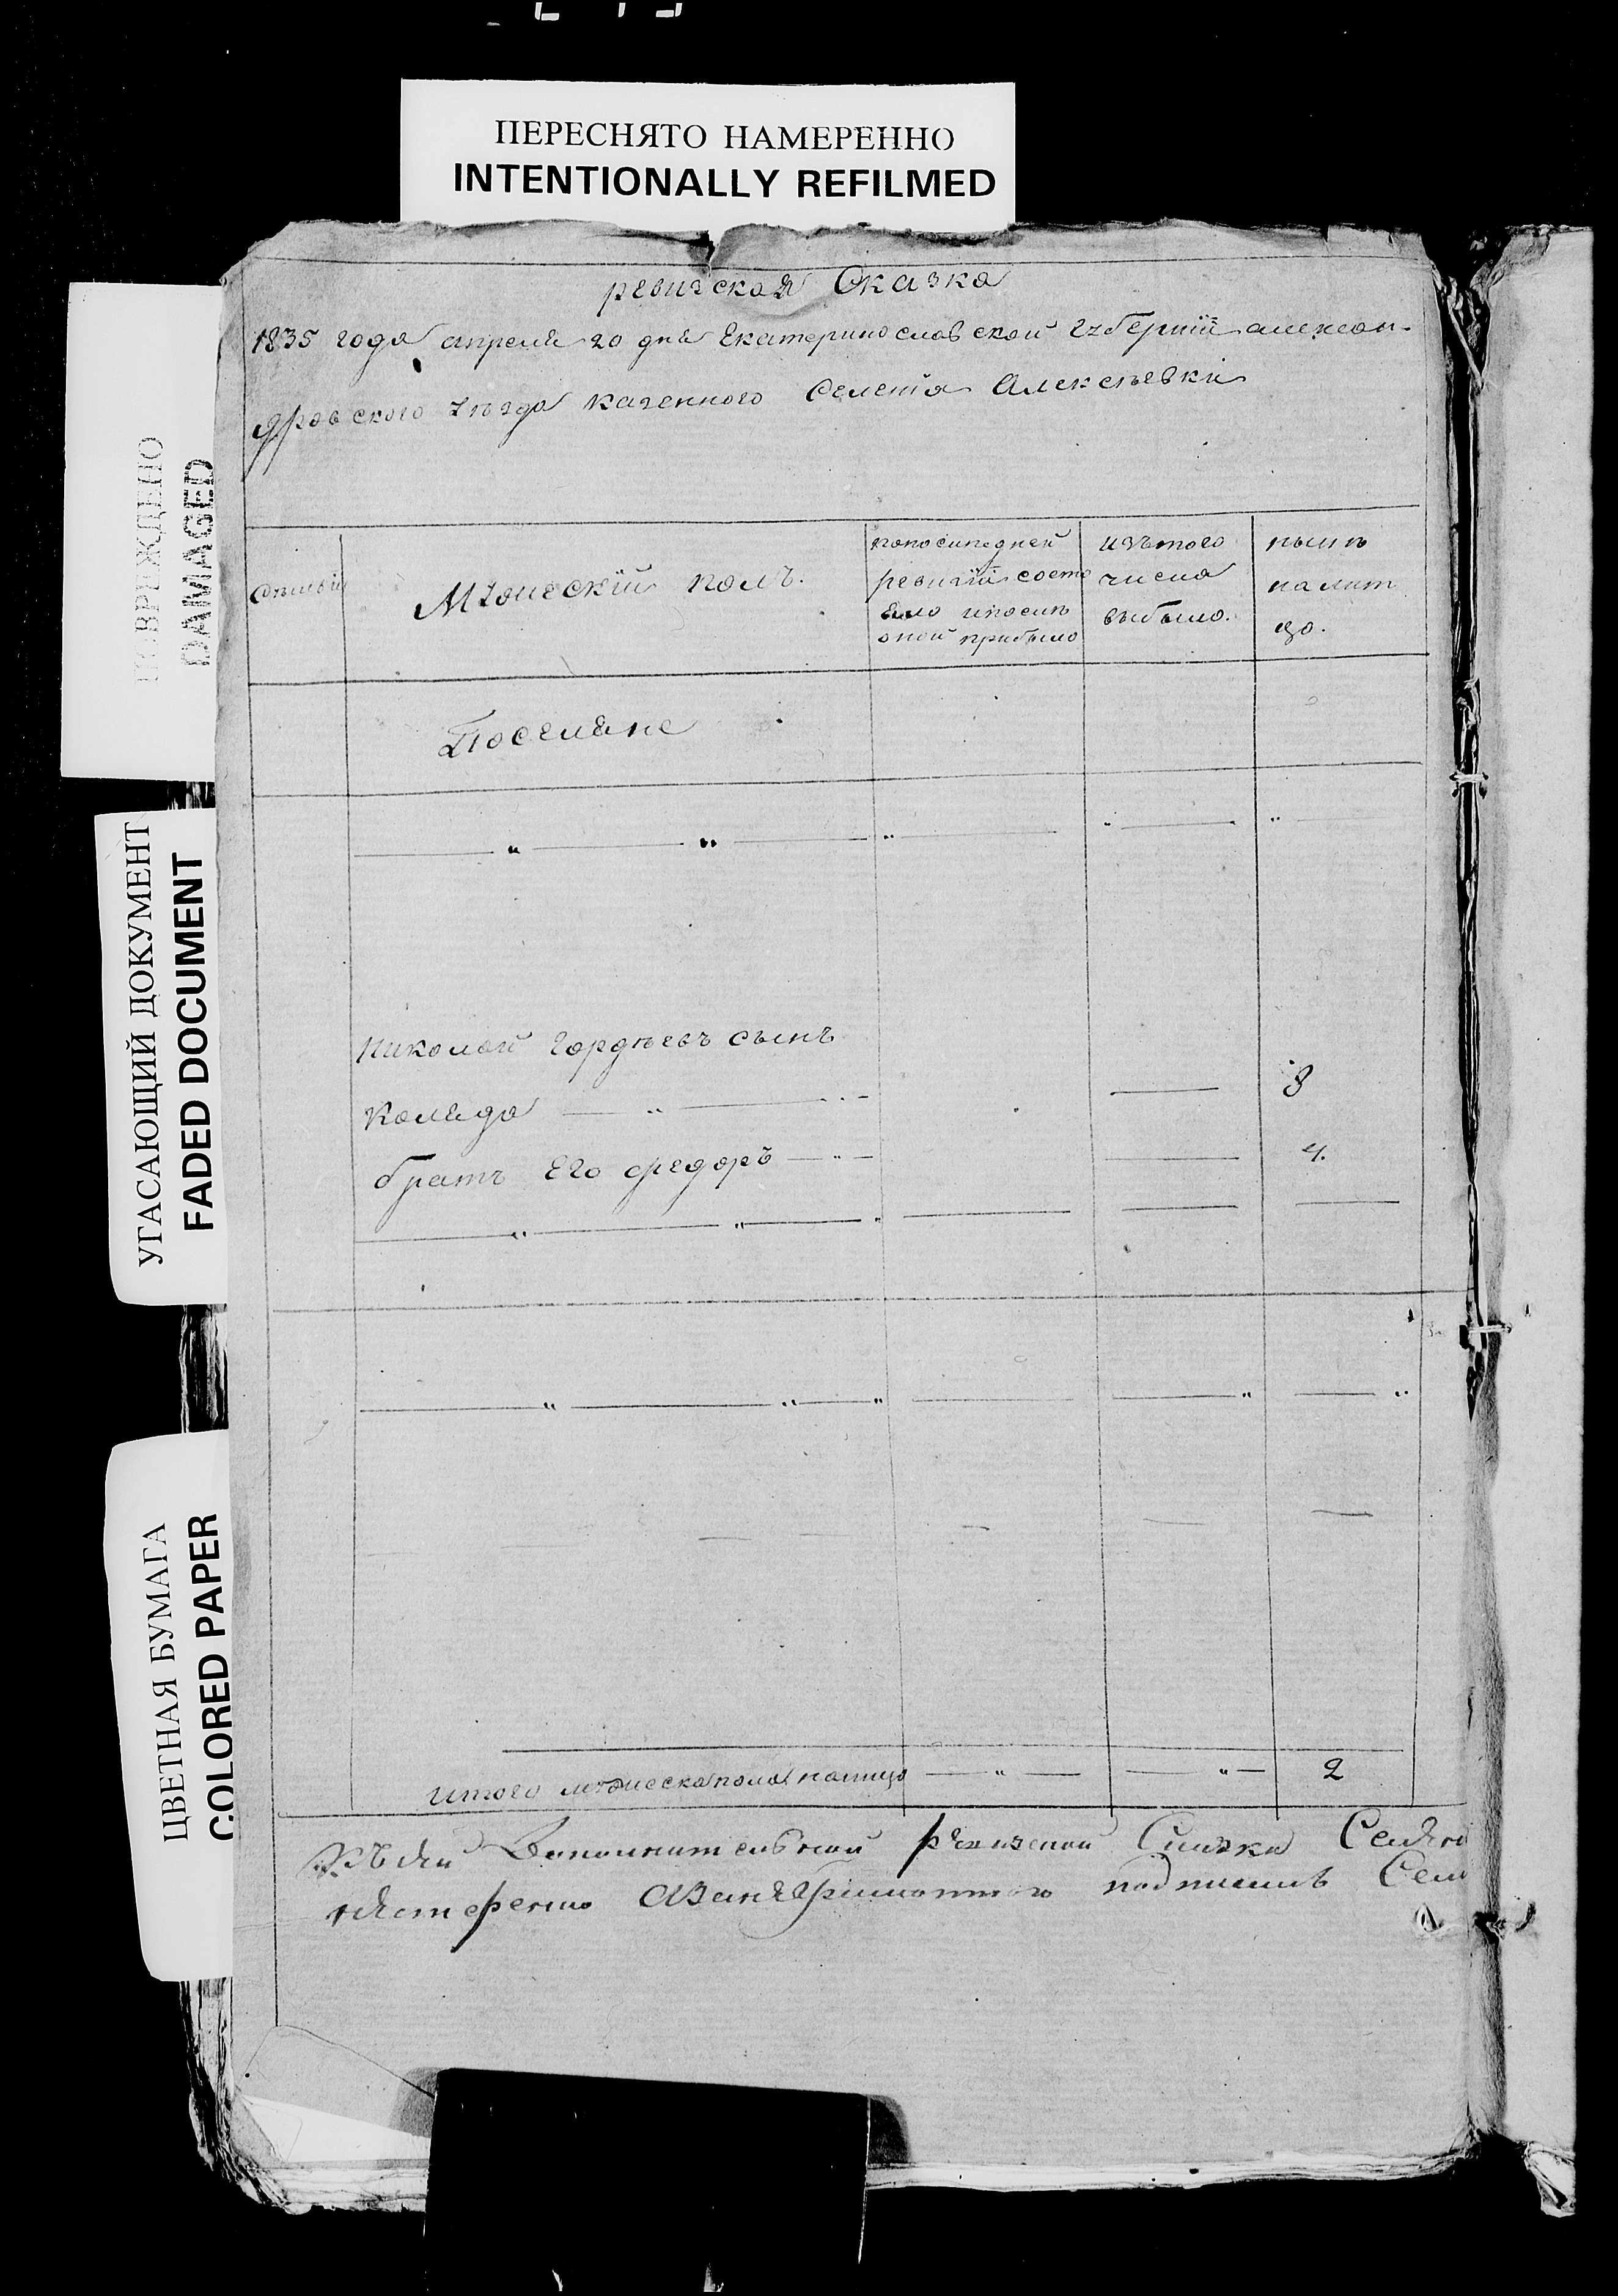 ПЕРЕСНЯТО НАМЕРЕННО
INTENTIONALLY REFILMED
ПОВРЕЖДЕНО
DAMAGED
УГАСАЮЩИЙ ДОКУМЕНТ
FADED DOCUMENT
ЦВЕТНАЯ БУМАГА
COLORED PAPER
ревизская Сказка
1835 года апреля 20 дня Екатеринославской губернїи алексан-
дровского уѣзда казенного Селенїя Алексѣевки
семьи
Мужескїй полъ.
попоследней
ревизїи состо
яло ипослѣ
оной прибыло
изътого
числа
выбыло.
нынѣ
налит
цо.
Поселяне
николай гордѣевъ сынъ
коляда 3
братъ Его федоръ 4.
итого мужеска пола налицо 2
Къ сей Дополнительной ревизской Сказки
подписалъ